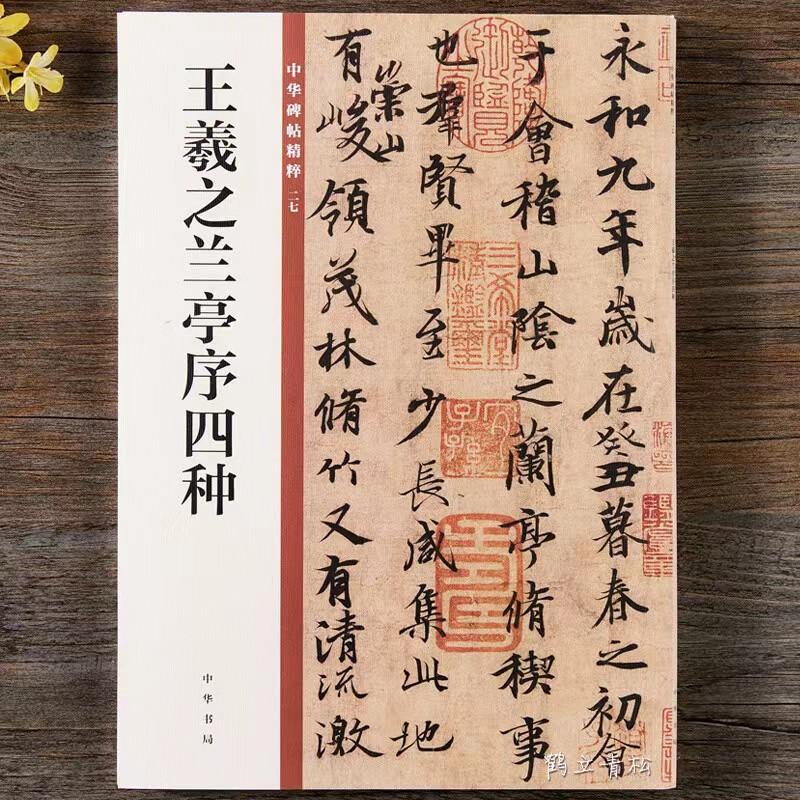 王羲之兰亭序四种
中华碑帖精粹 二七
中华书局
永和九年歲在癸丑暮春之初會
于會稽山陰之蘭亭脩稧事
也羣賢畢至少長咸集此地
有崇山峻領茂林脩竹又有清流激
三希堂精鑑璽
宜子孫
鹤立青松